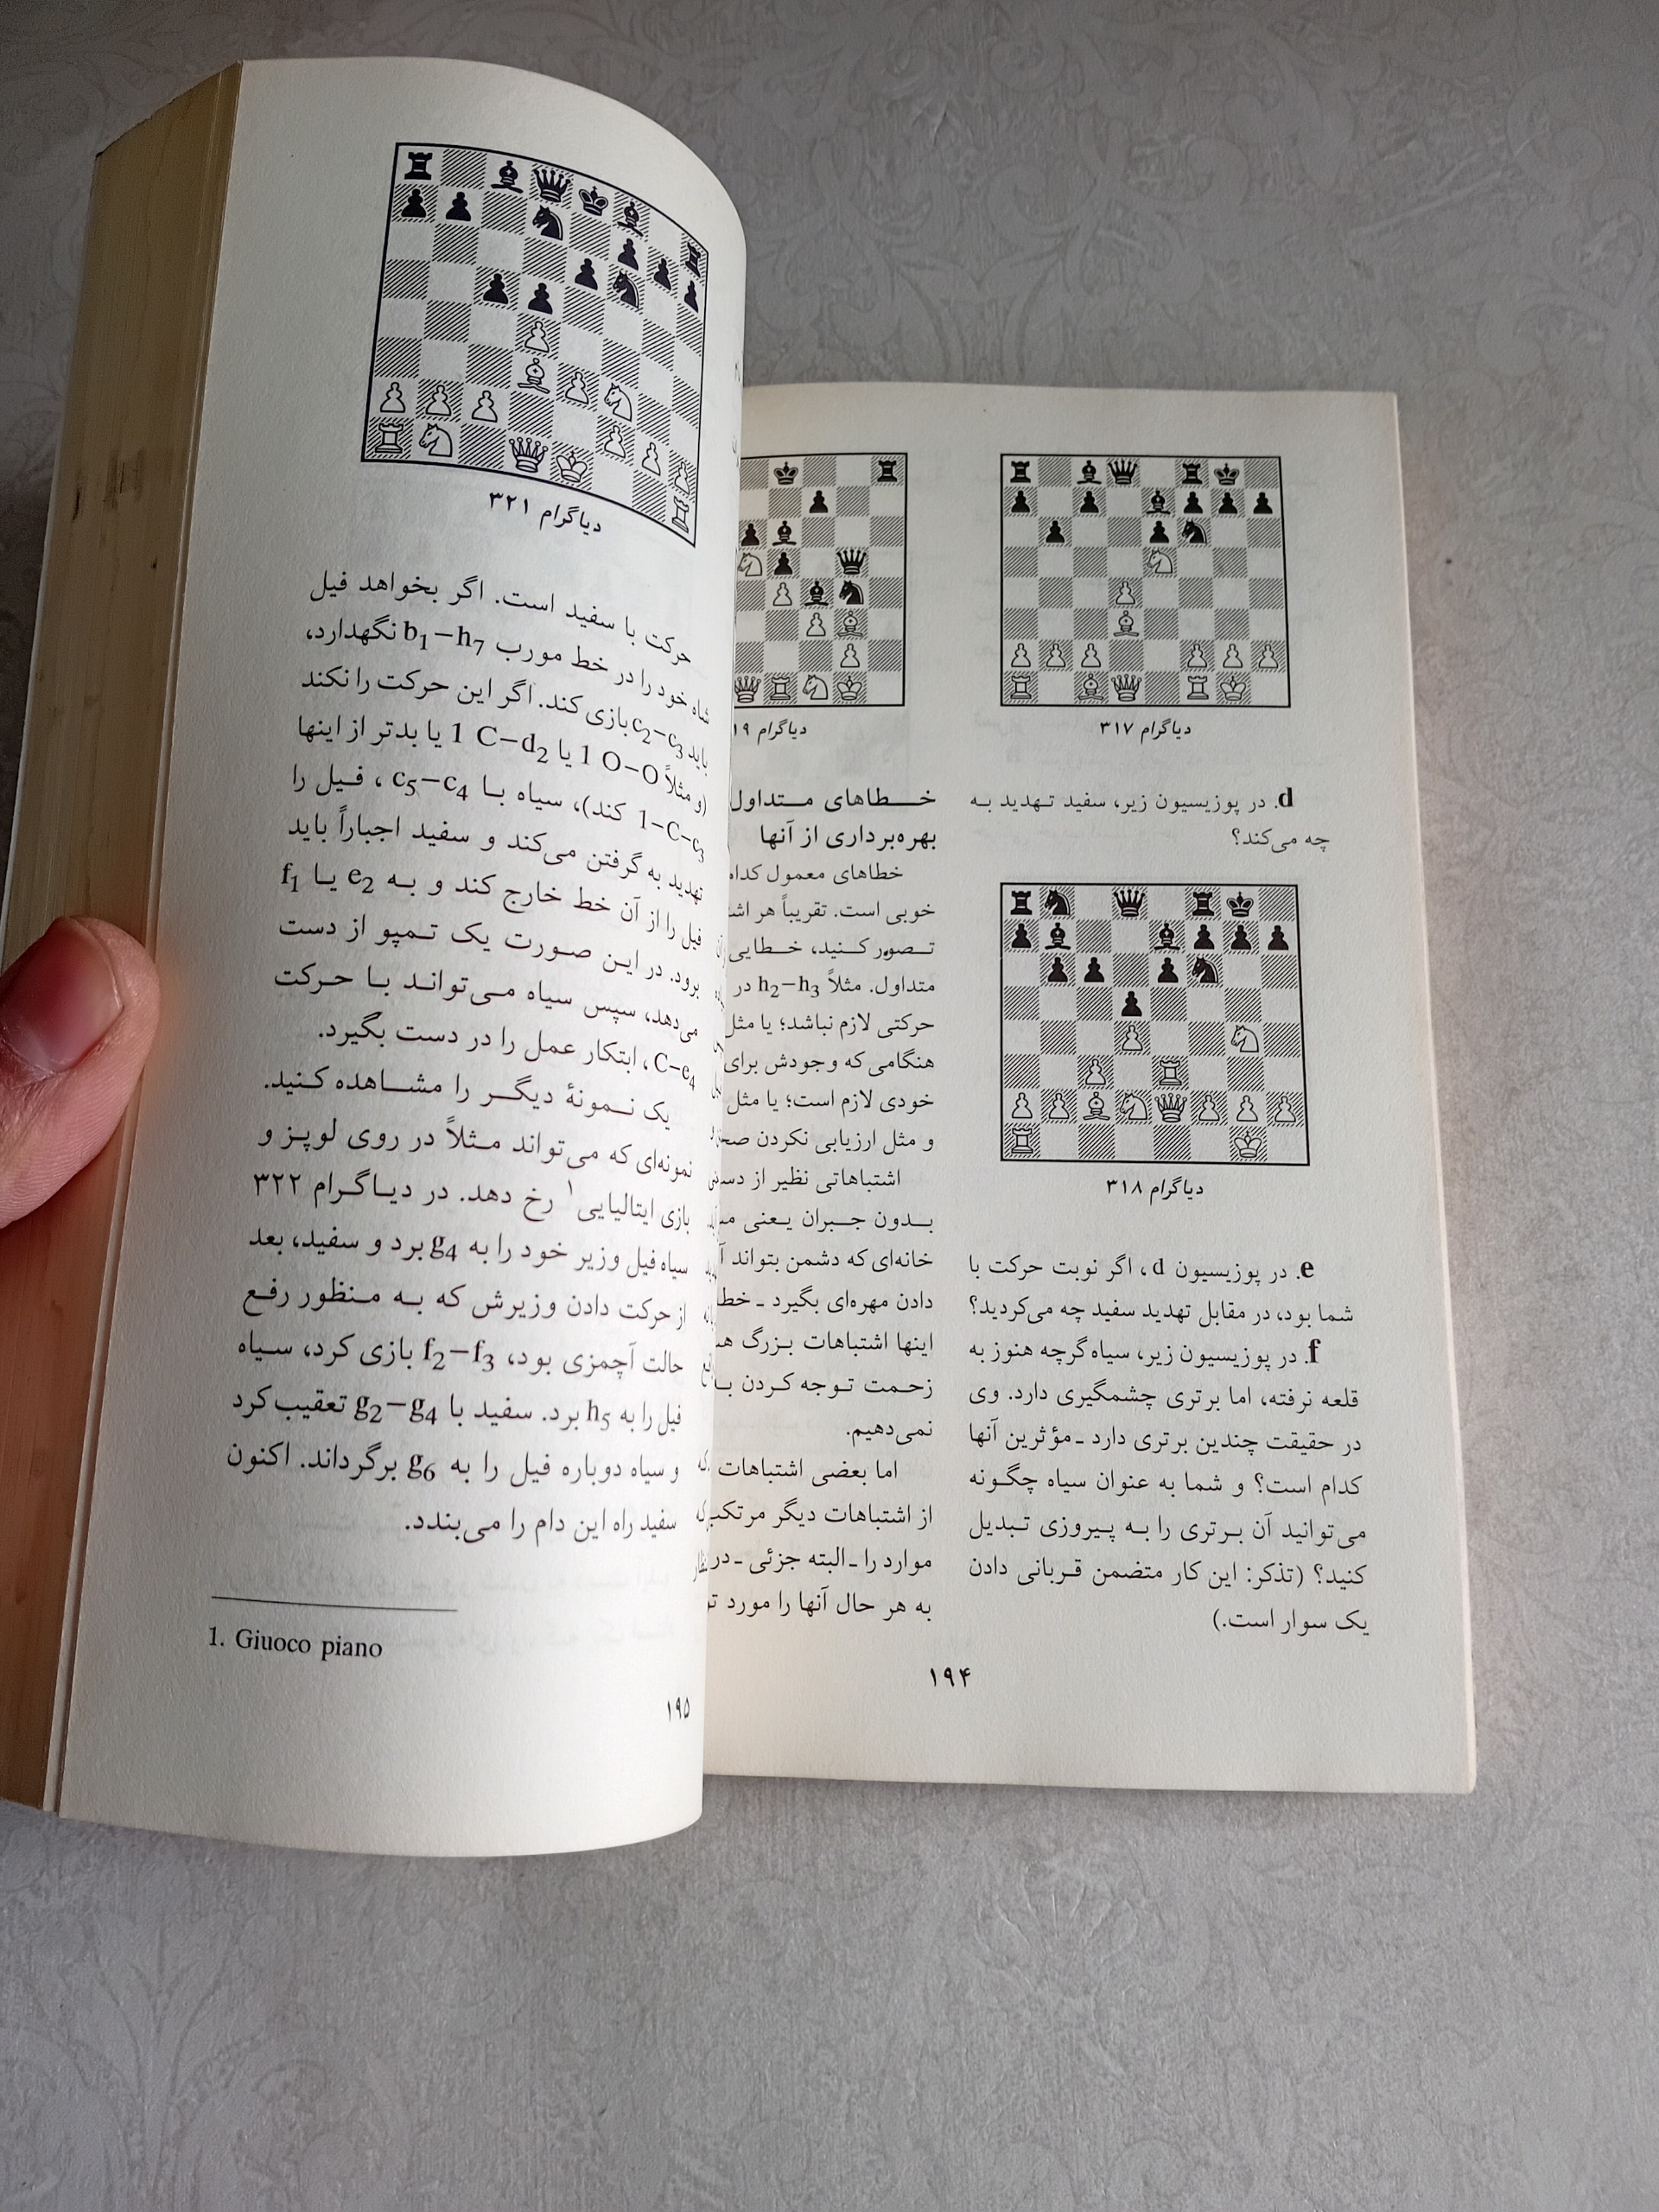 دیاگرام ۳۱۷
d. در پوزیسیون زیر، سفید تهدید به
چه می‌کند؟
دیاگرام ۳۱۸
e. در پوزیسیون d، اگر نوبت حرکت با
شما بود، در مقابل تهدید سفید چه می‌کردید؟
f. در پوزیسیون زیر، سیاه گرچه هنوز به
قلعه نرفته، اما برتری چشمگیری دارد. وی
در حقیقت چندین برتری دارد ـ مؤثرین آنها
کدام است؟ و شما به عنوان سیاه چگونه
می‌توانید آن برتری را به پیروزی تبدیل
کنید؟ (تذکر: این کار متضمن قربانی دادن
یک سوار است.)
دیاگرام
خطاهای متداول
بهره‌برداری از آنها
خطاهای معمول
خوبی است. تقریباً هر
تصور کنید، خطایی
متداول. مثلاً h2–h3 در
حرکتی لازم نباشد؛ یا مثل
هنگامی که وجودش برای
خودی لازم است؛ یا مثل
و مثل ارزیابی نکردن
اشتباهاتی نظیر از
بدون جبران یعنی
خانه‌ای که دشمن بتواند
دادن مهره‌ای بگیرد ـ خطا
اینها اشتباهات بزرگ
زحمت توجه کردن
نمی‌دهیم.
اما بعضی اشتباهات
از اشتباهات دیگر
موارد را ـ البته جزئی ـ در
به هر حال آنها را مورد
۱۹۴
دیاگرام ۳۲۱
حرکت با سفید است. اگر بخواهد فیل
شاه خود را در خط مورب b1–h7 نگهدارد،
باید c2–c3 بازی کند. اگر این حرکت را نکند
(و مثلاً 1 O–O یا 1 C–d2 یا بدتر از اینها
1–C–c3 کند)، سیاه با c5–c4 ، فیل را
تهدید به گرفتن می‌کند و سفید اجباراً باید
فیل را از آن خط خارج کند و به e2 یا f1
برود. در این صورت یک تمپو از دست
می‌دهد، سپس سیاه می‌تواند با حرکت
C–e4، ابتکار عمل را در دست بگیرد.
یک نمونهٔ دیگر را مشاهده کنید.
نمونه‌ای که می‌تواند مثلاً در روی لوپز و
بازی ایتالیایی۱ رخ دهد. در دیاگرام ۳۲۲
سیاه فیل وزیر خود را به g4 برد و سفید، بعد
از حرکت دادن وزیرش که به منظور رفع
حالت آچمزی بود، f2–f3 بازی کرد، سیاه
فیل را به h5 برد. سفید با g2–g4 تعقیب کرد
و سیاه دوباره فیل را به g6 برگرداند. اکنون
سفید راه این دام را می‌بندد.
1. Giuoco piano
۱۹۵